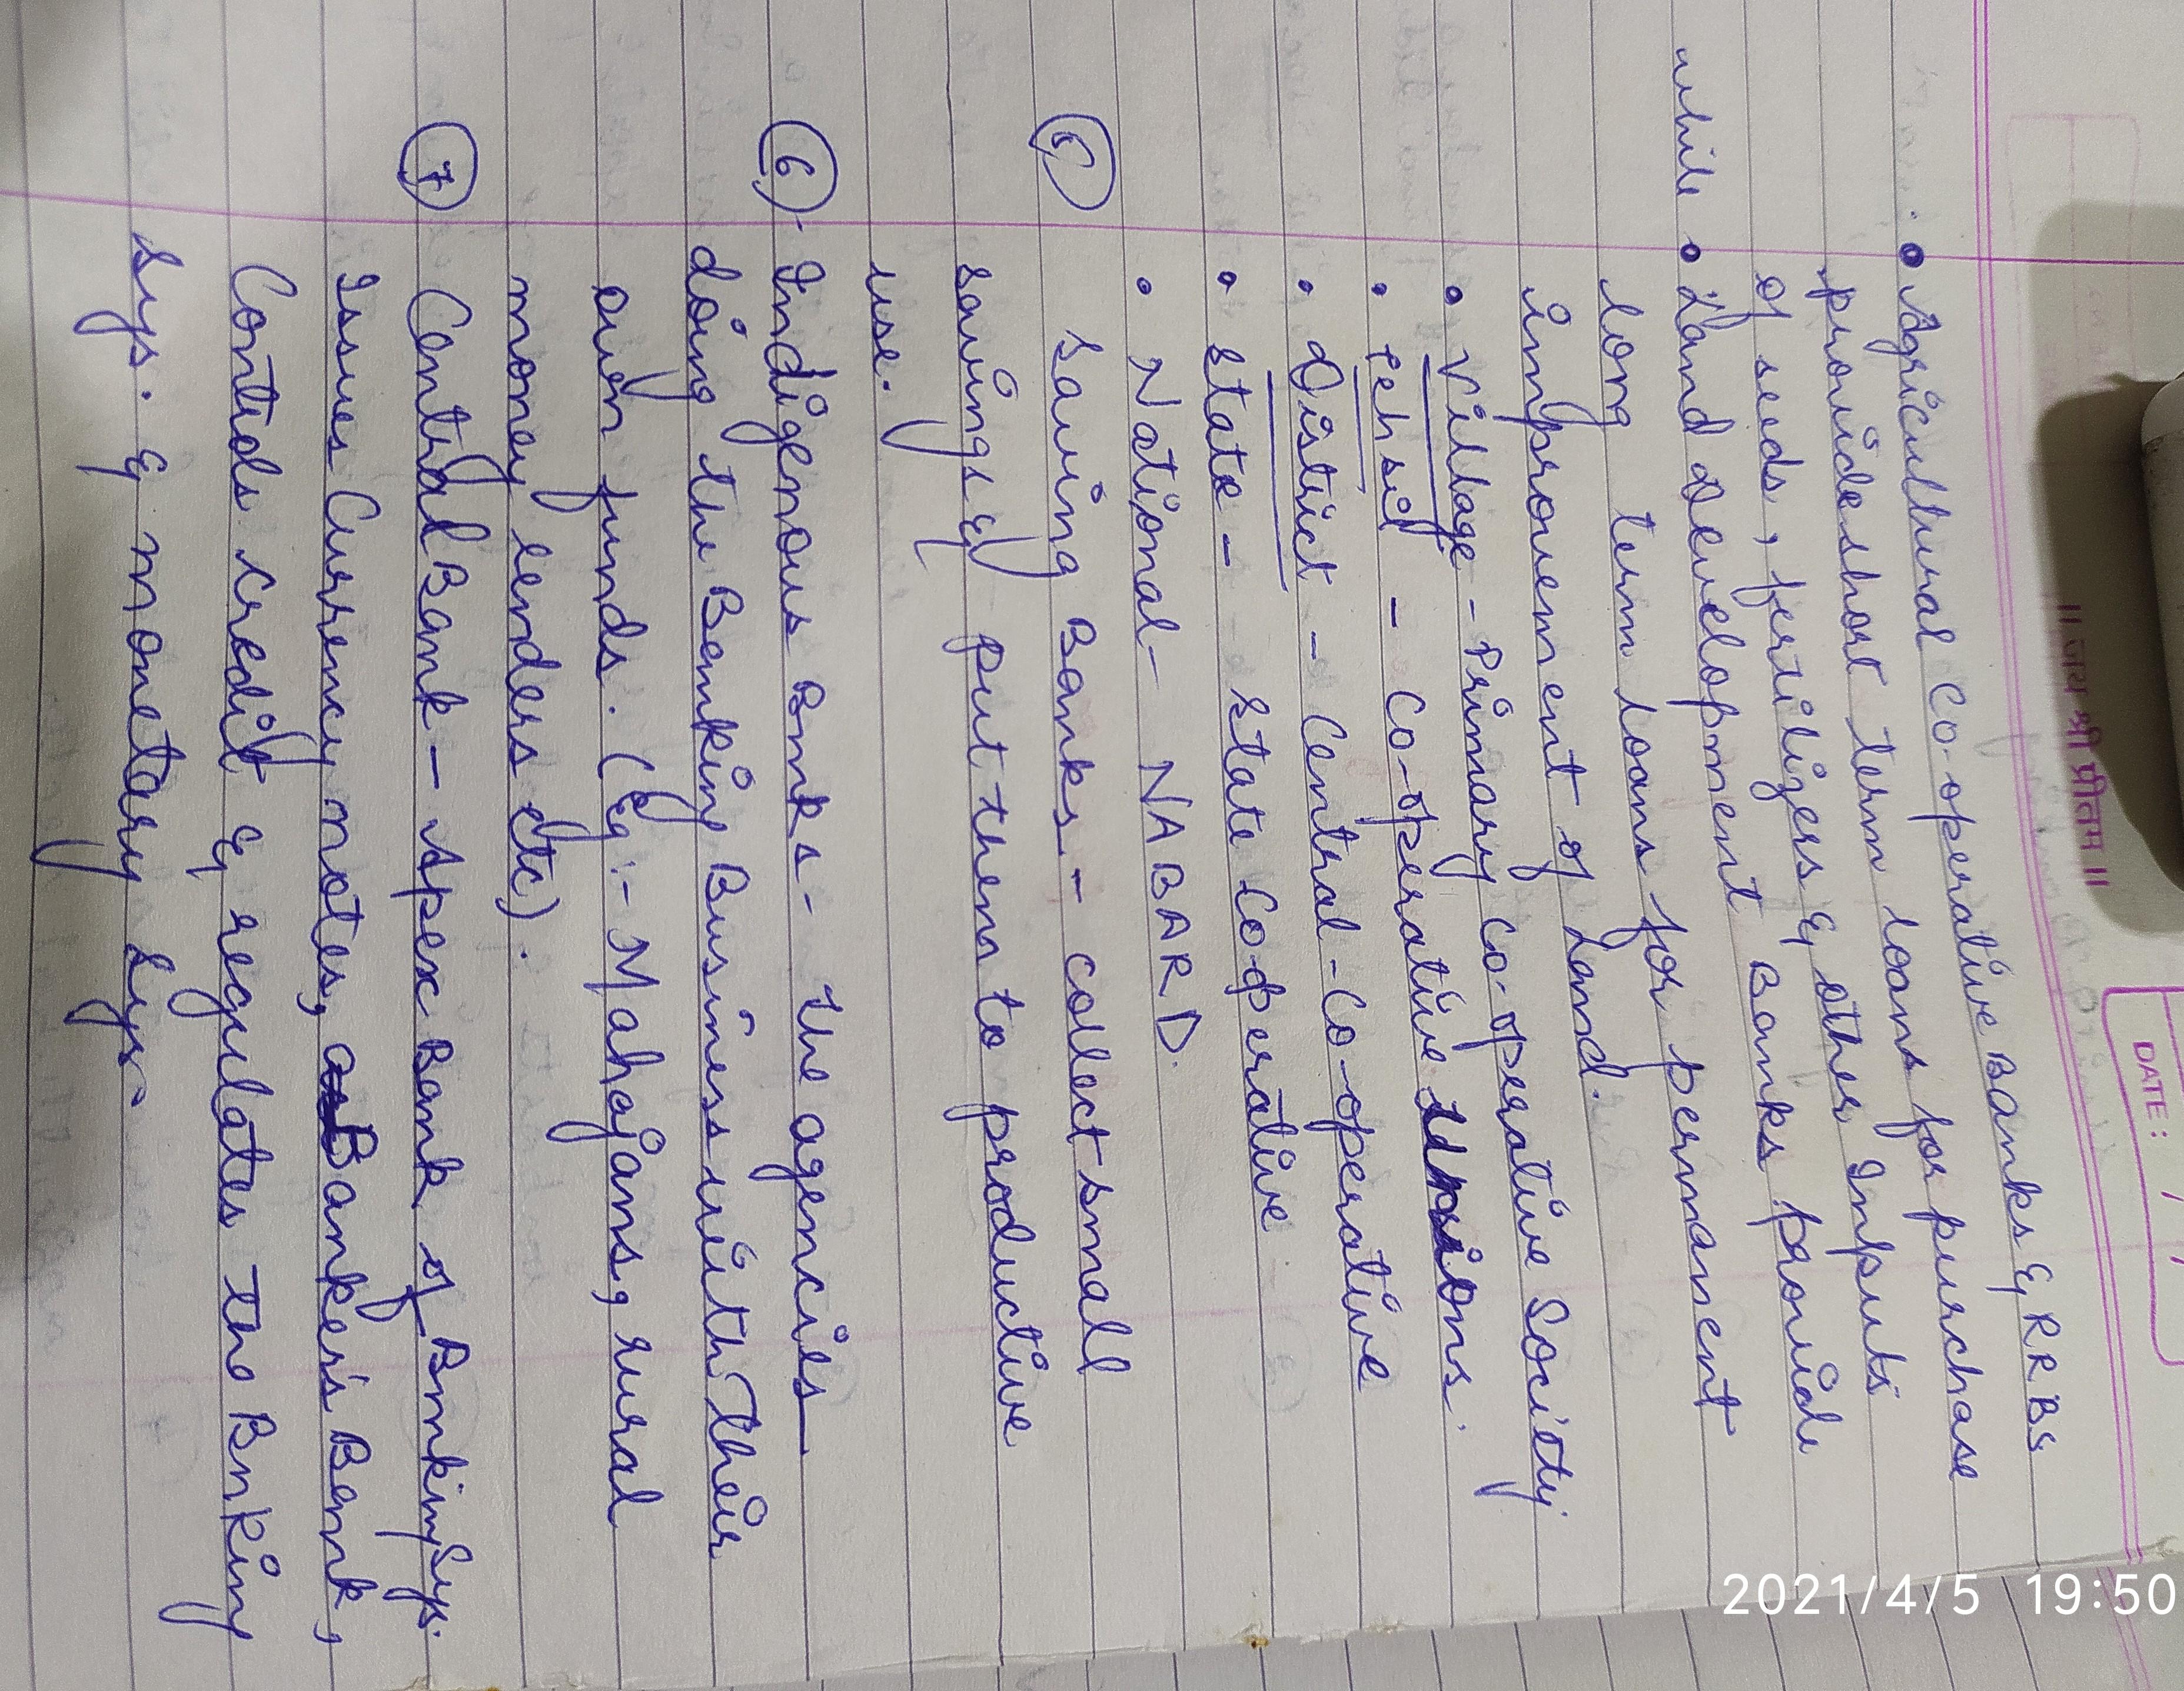 || जय श्री प्रीतम ||
DATE: / /
• Agricultural Co-operative Banks & RRBs
provide short term loans for purchase
of seeds, fertilizers & other Inputs
while • Land Development Banks provide
long term loans for permanent
improvement of Land.
• Village - Primary Co-operative Society
• Tehsil - Co-operative Unions.
• District - Central-Co-operative
• State - State Cooperative
• National - NABARD.
Saving Banks - collect small
savings & put them to productive
use.
⑥ Indigenous Banks - The agencies
doing the Banking Business with Their
own funds. (Eg:- Mahajans, rural
money lenders etc).
⑦ Central Bank - Apex Bank of Banking Sys.
Issues Currency notes, Banker's Bank,
Controls credit & regulates the Bnking
Sys. & monetary Sys.
2021/4/5 19:50